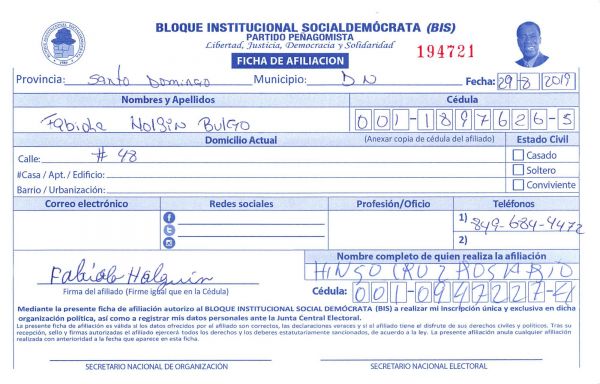 BLOQUE INSTITUCIONAL SOCIALDEMÓCRATA (BIS)
PARTIDO PEÑAGOMISTA
Libertad, Justicia, Democracia y Solidaridad
FICHA DE AFILIACION
194721
Provincia: Santo Domingo Municipio: DN Fecha: 29/8/2019
Nombres y Apellidos Cédula
Fabiola Holgin 001-1897626-5
Domicilio Actual (Anexar copia de cédula del afiliado) Estado Civil
Calle: # 48 Casado
#Casa / Apt. / Edificio: Soltero
Barrio / Urbanización: Conviviente
Correo electrónico Redes sociales Profesión/Oficio Teléfonos
1) 849-684-4472
2)
Nombre completo de quien realiza la afiliación
Fabiola Holguin CRUZ ROSARIO
Firma del afiliado (Firme igual que en la Cédula) Cédula: 001-0947227-4
Mediante la presente ficha de afiliación autorizo al BLOQUE INSTITUCIONAL SOCIAL DEMÓCRATA (BIS) a realizar mi inscripción única y exclusiva en dicha
organización política, así como a registrar mis datos personales ante la Junta Central Electoral.
La presente ficha de afiliación es válida si los datos ofrecidos por el afiliado son correctos, las declaraciones veraces y si el afiliado tiene el disfrute de sus derechos civiles y políticos. Tras su
recepción, sello y firmas autorizadas el afiliado ejercerá todos los derechos y los deberes estatutariamente sancionados, de acuerdo a la ley. La presente afiliación anula cualquier afiliación
realizada con anterioridad a la fecha que aparece en esta ficha.
SECRETARIO NACIONAL DE ORGANIZACIÓN SECRETARIO NACIONAL ELECTORAL